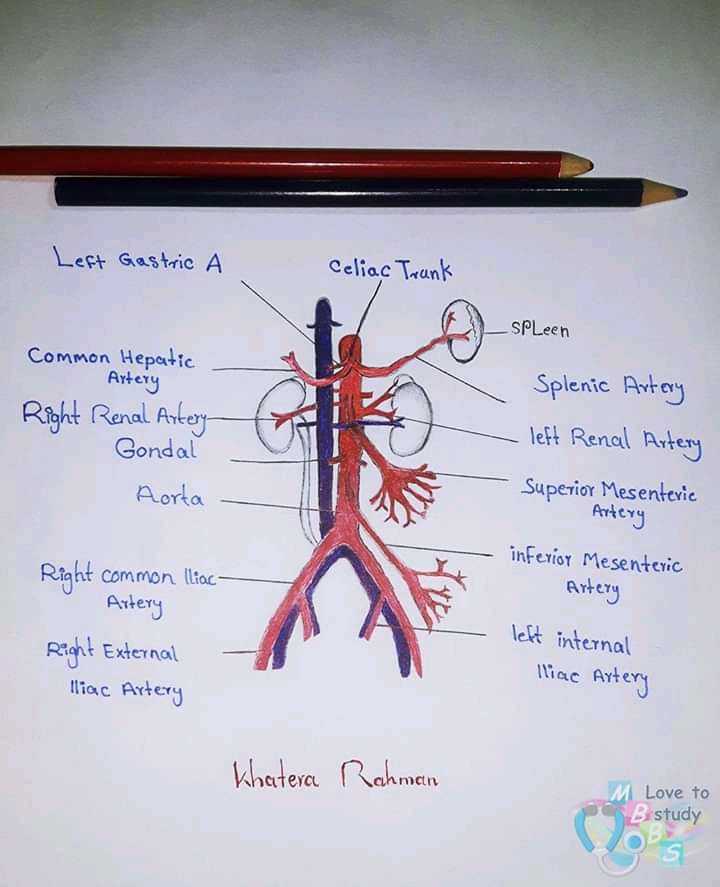 Left Gastric A
Celiac Trunk
SPLeen
Common Hepatic
Artery
Splenic Artery
Right Renal Artery
left Renal Artery
Gondal
Superior Mesenteric
Artery
Aorta
inferior Mesenteric
Artery
Right common Iliac
Artery
left internal
Iliac Artery
Right External
Iliac Artery
Khatera Rahman
M Love to
B study
B
S